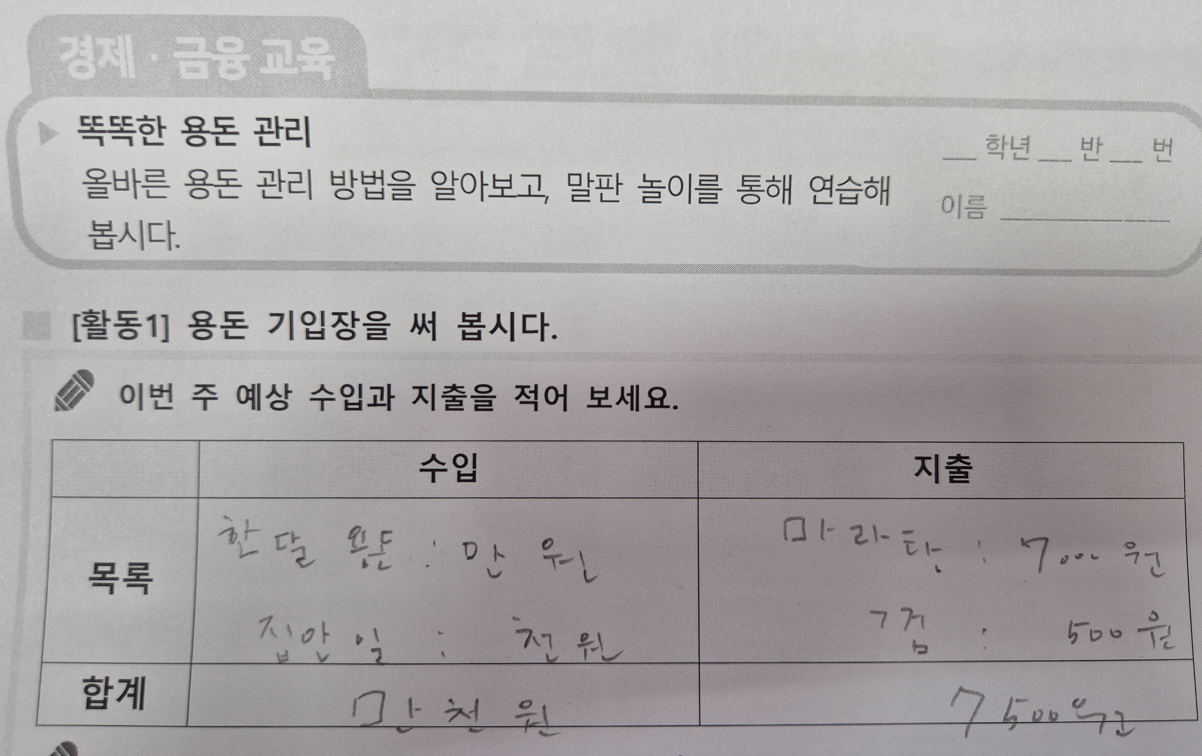 경제·금융 교육
똑똑한 용돈 관리
올바른 용돈 관리 방법을 알아보고, 말판 놀이를 통해 연습해
봅시다.
__ 학년 __ 반 __ 번
이름 __________
[활동1] 용돈 기입장을 써 봅시다.
이번 주 예상 수입과 지출을 적어 보세요.
수입 지출
목록
한달 용돈 : 만 원
집안 일 : 천 원
마라탕 : 7000 원
: 500 원
합계
만 천 원
7500원